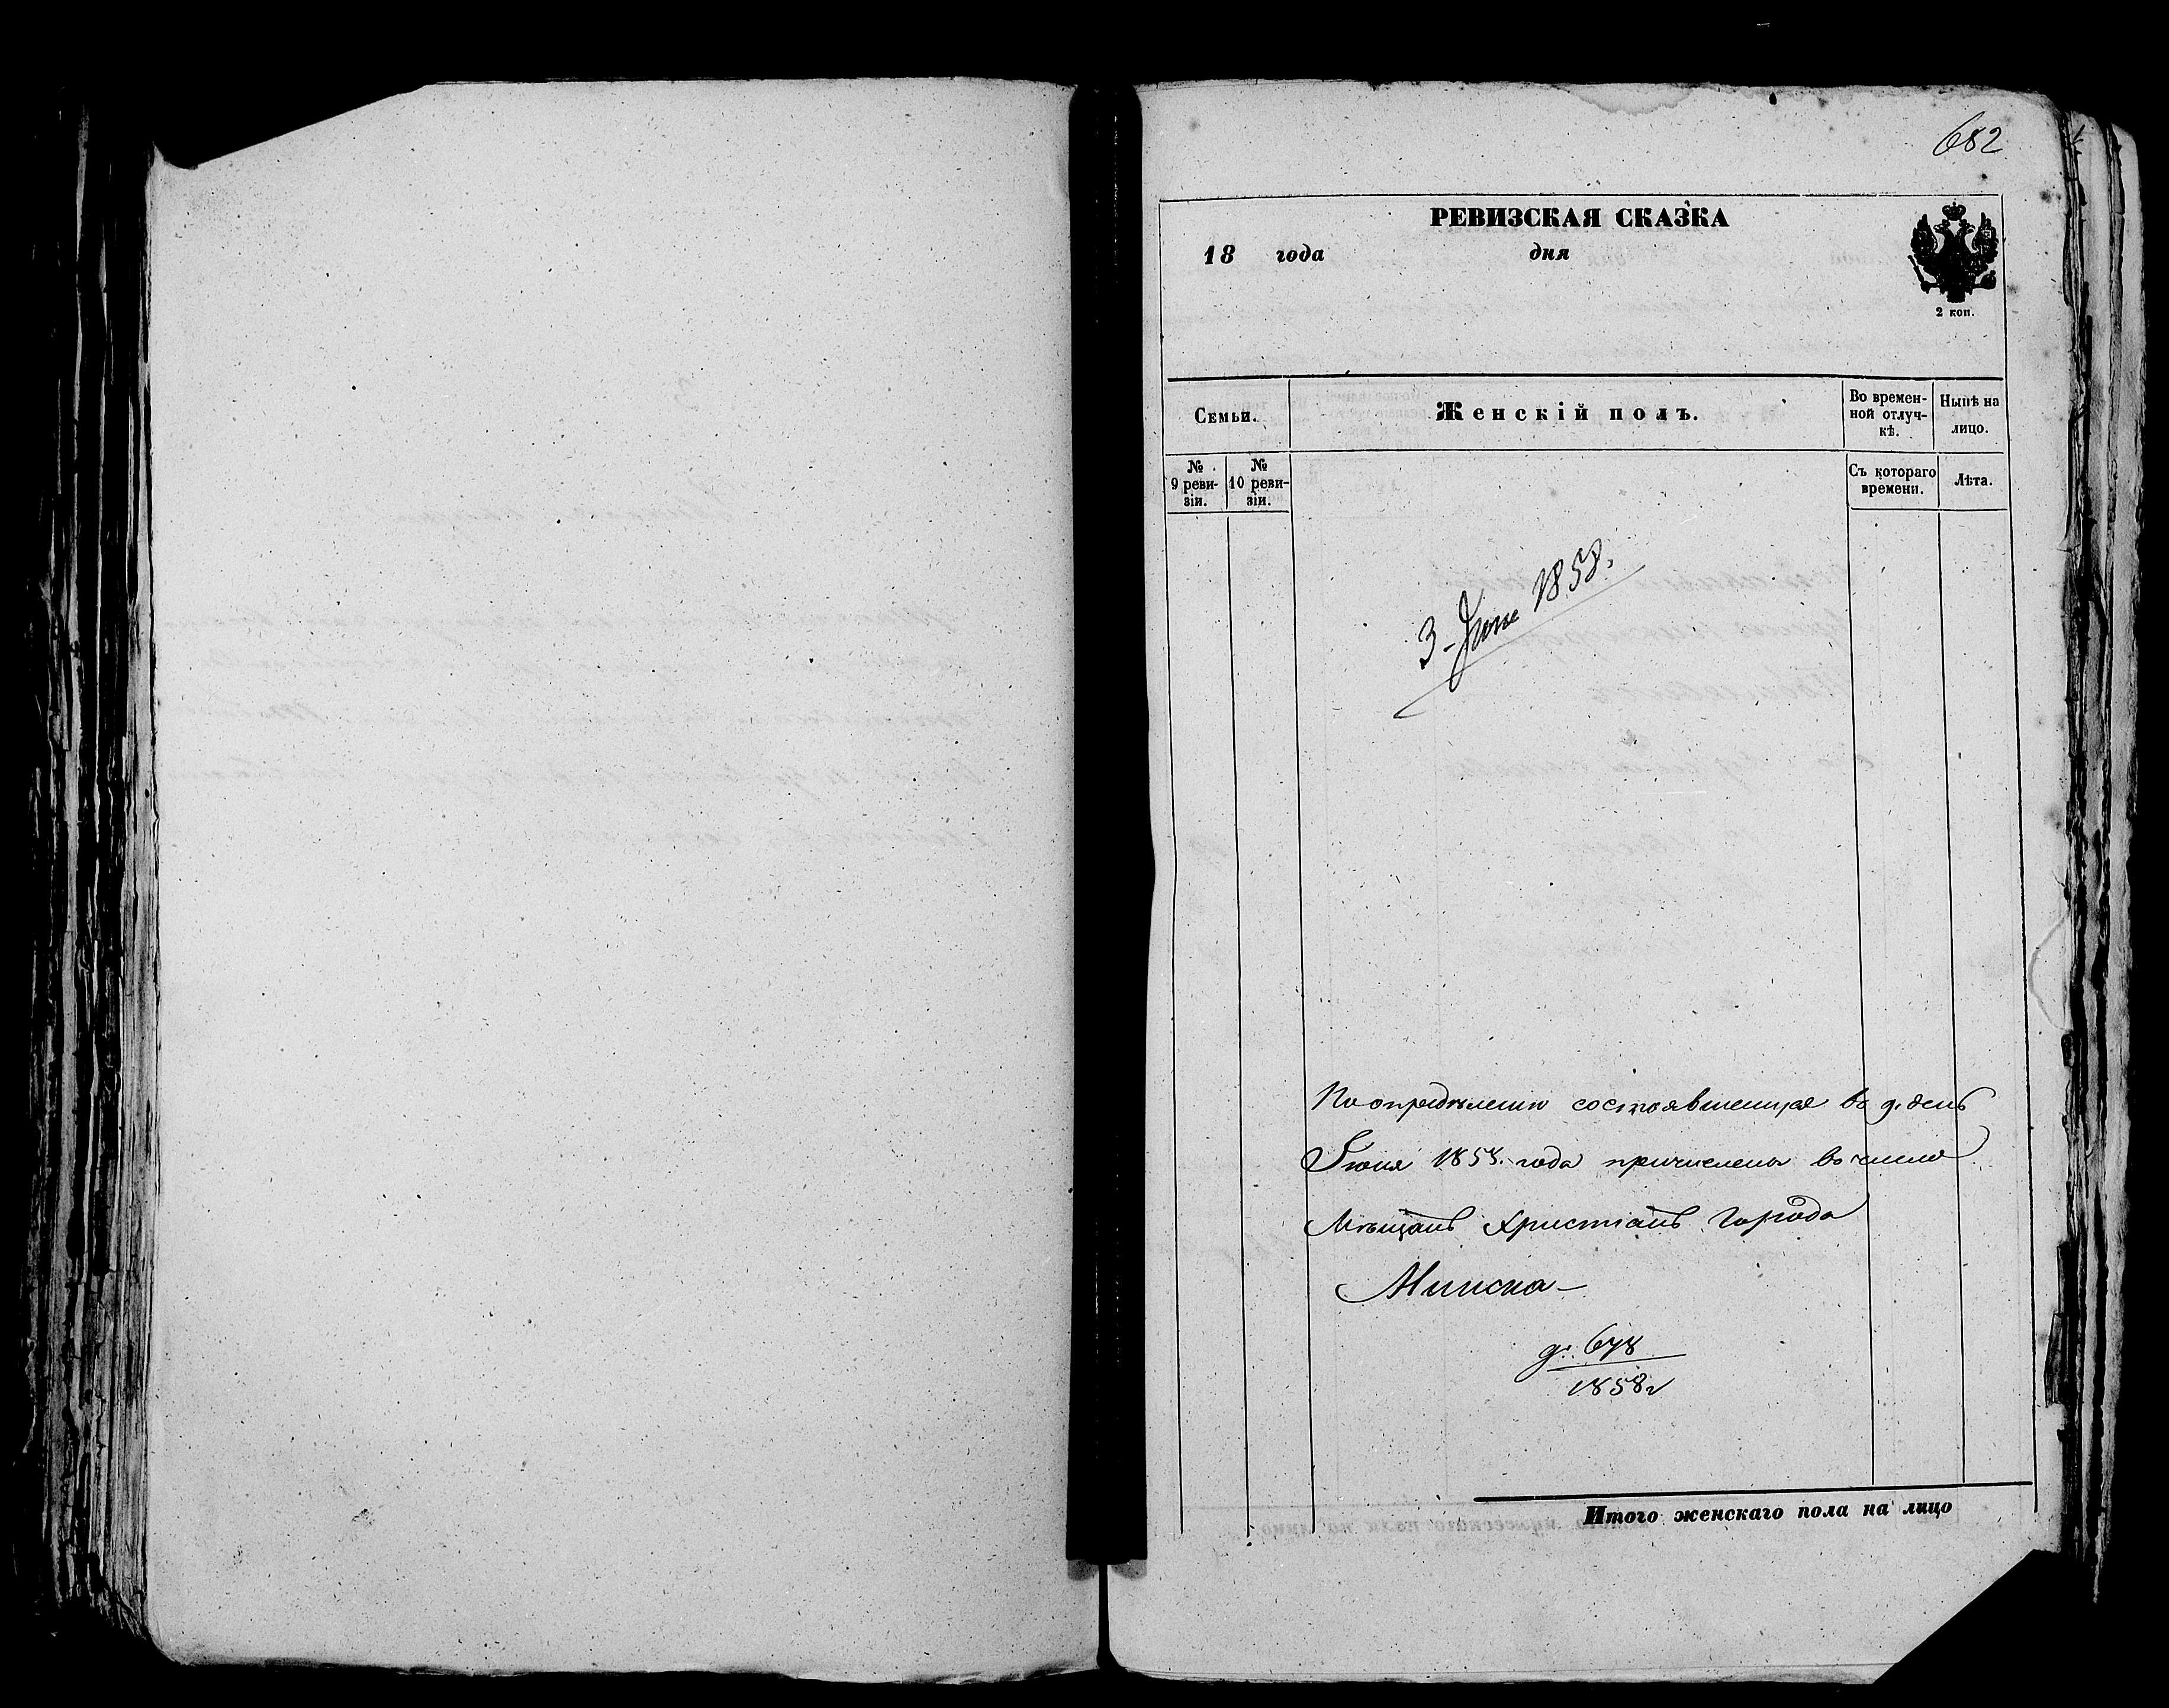 682
РЕВИЗСКАЯ СКАЗКА
18 года дня
2 коп.
Семьи.
Женскій полъ.
Во времен-
ной отлуч-
кѣ.
Нынѣ на
лицо.
№
9 реви-
зіи.
№
10 реви-
зіи.
Съ котораго
времени.
Лѣта.
3 - Іюня 1858.
По опредѣленію состоявшемуся въ 9. день
Іюня 1858. года причислены въ число
Мѣщанъ Христіанъ Города
Минска -
д. 678
1858 г
Итого женскаго пола на лицо